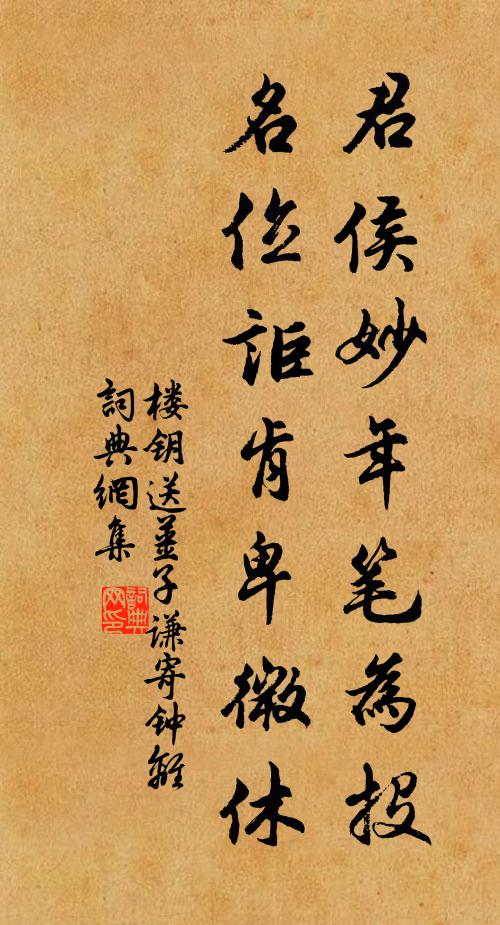 君侯妙年笔為投
名位詎肯卑微休
楼钥送姜子谦寄钟離
詞典網集
詞典網印